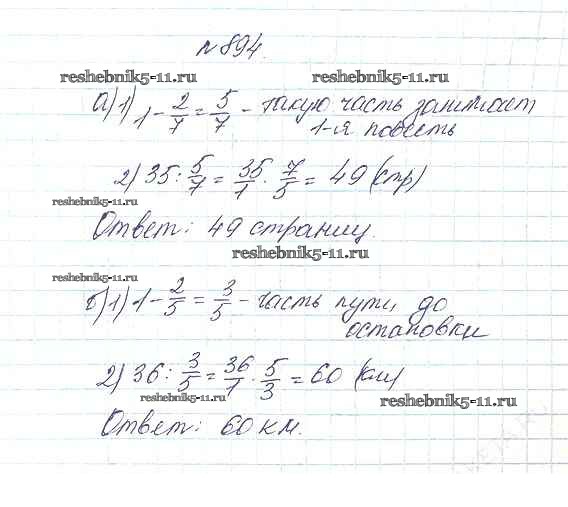 №894.
reshebnik5-11.ru reshebnik5-11.ru
а) 1) 1 - 2/7 = 5/7 - такую часть занимает
1-я повесть
2) 35 : 5/7 = 35/1 · 7/5 = 49 (стр)
reshebnik5-11.ru
Ответ: 49 страниц.
reshebnik5-11.ru
reshebnik5-11.ru
б) 1) 1 - 2/5 = 3/5 - часть пути до
остановки
2) 36 : 3/5 = 36/1 · 5/3 = 60 (км)
reshebnik5-11.ru reshebnik5-11.ru
Ответ: 60 км.